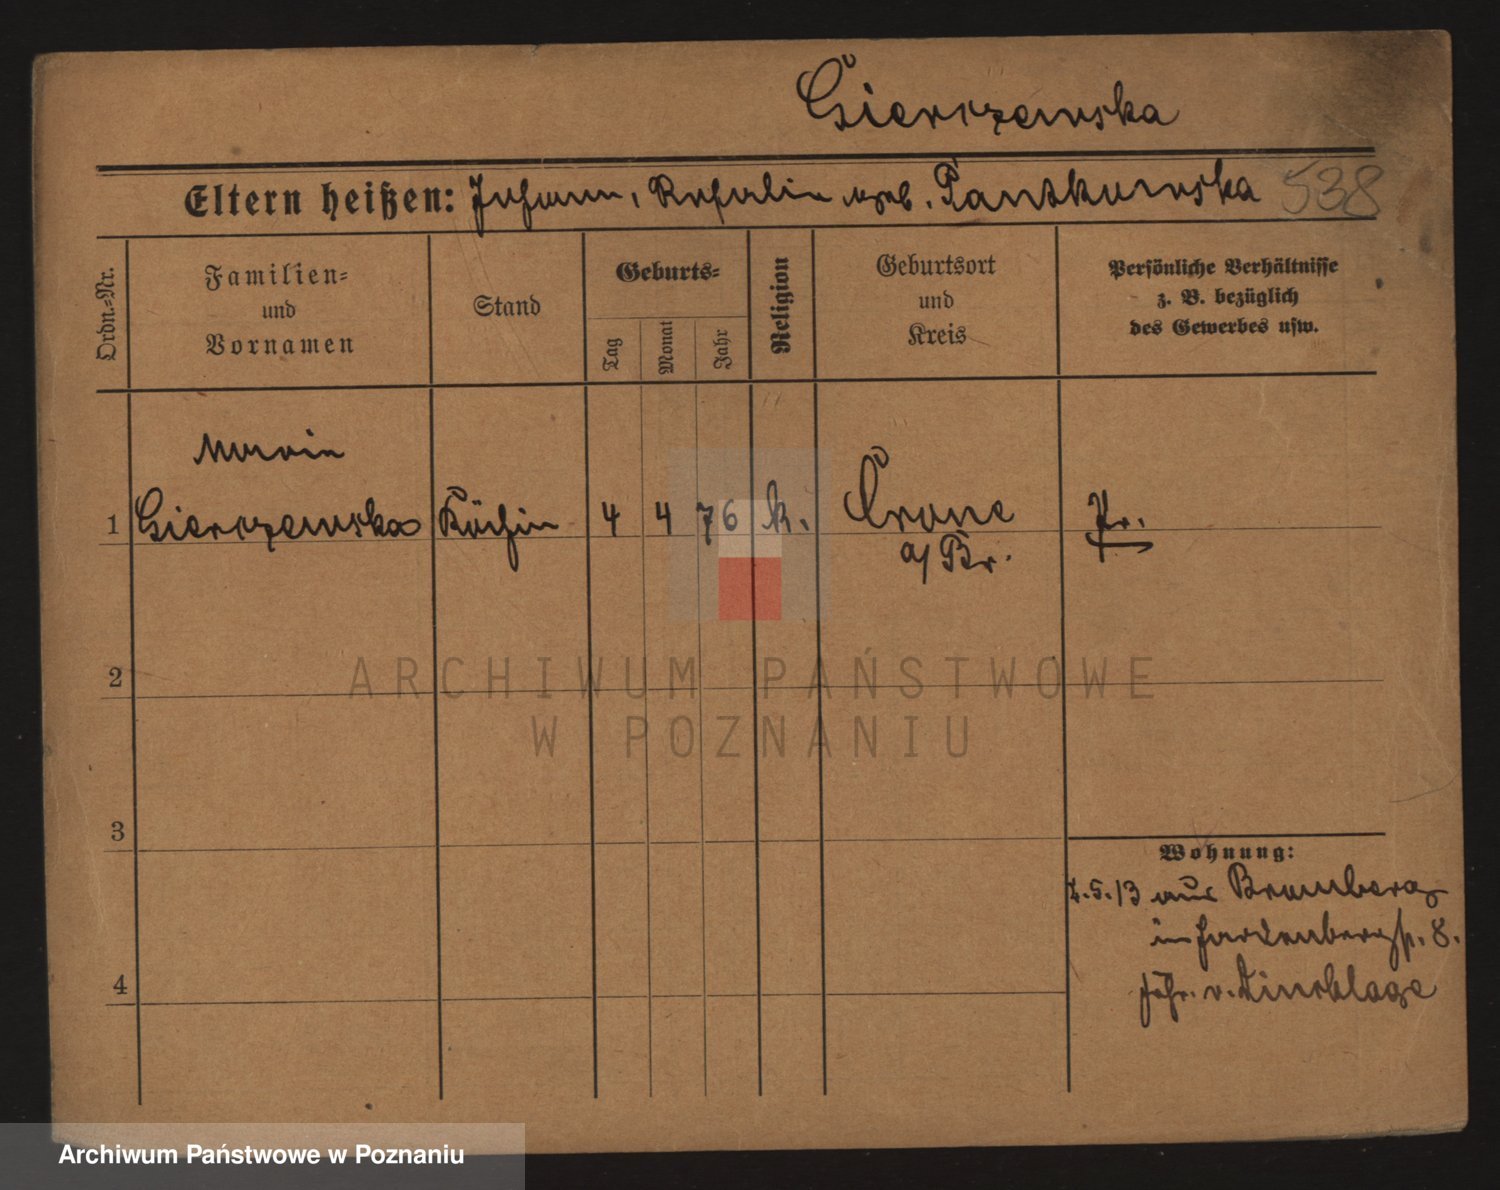 Gierczewska
Eltern heißen: Johann, Rosalie geb. Pantkowska 538
Ordn.-Nr.
Familien-
und
Vornamen
Stand
Geburts-
Tag
Monat
Jahr
Religion
Geburtsort
und
Kreis
Persönliche Verhältnisse
z. B. bezüglich
des Gewerbes usw.
Marie
1 Gierczewska Köchin 4 4 76 k. Crone Pr.
a/Br.
2
ARCHIWUM PAŃSTWOWE
W POZNANIU
3
Wohnung:
2.5.13 aus Bromberg
8.
4
v. Dincklage
Archiwum Państwowe w Poznaniu